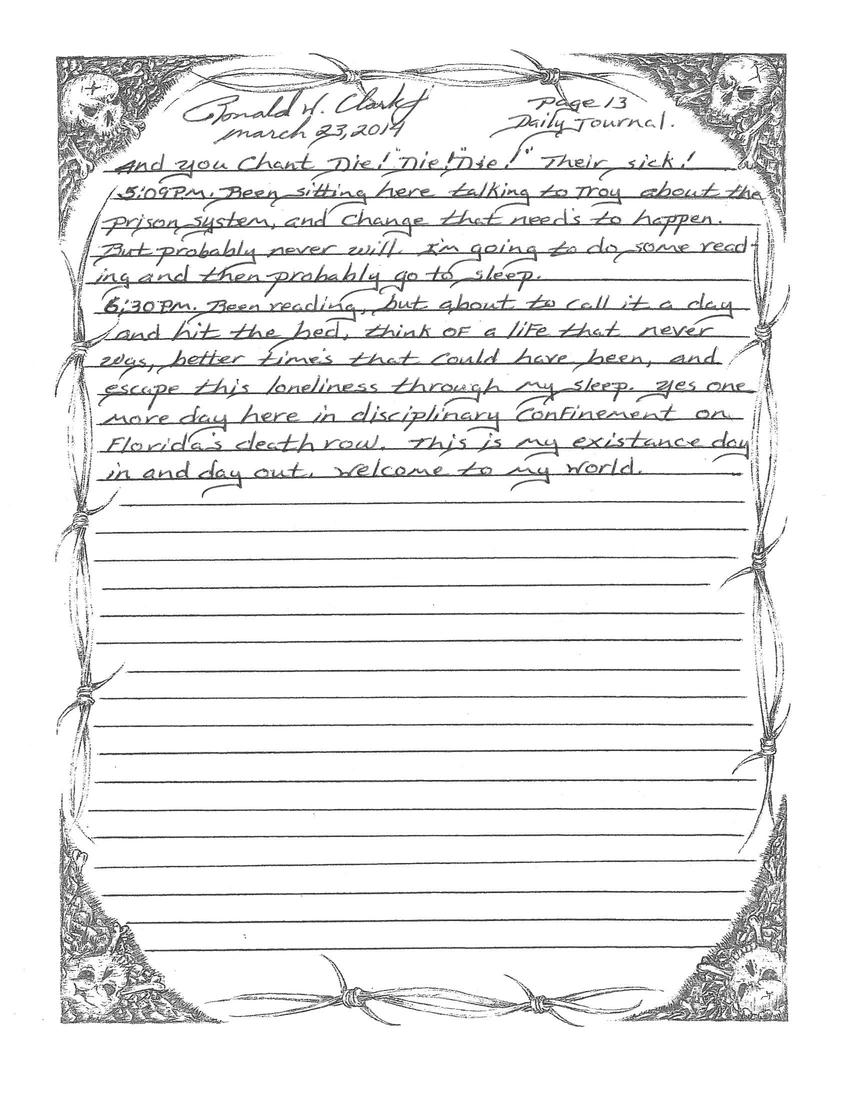 Ronald W. Clark Jr
Page 13
March 23, 2014
Daily Journal.
And you Chant Die! "Die!" Die!" Their sick!
5:09 P.M. Been sitting here talking to Troy about the
prison system, and Change that need's to happen.
But probably never will. I'm going to do some read-
ing and then probably go to sleep.
6:30 P.M. Been reading, but about to call it a day
and hit the bed, think of a life that never
was, better time's that could have been, and
escape this loneliness through my sleep. Yes one
more day here in disciplinary confinement on
Florida's death row. This is my existance day
in and day out. Welcome to my world.